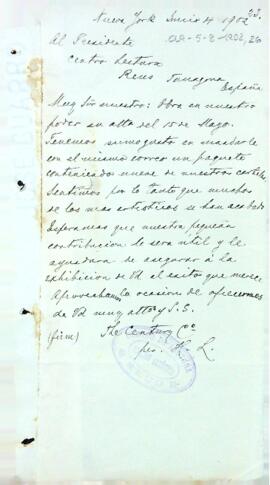 53.
Nueva York Junio 4 1902
Al Presidente
Centro Lectura
Reus Tarragona
España
Muy Sr nuestro: Obra en nuestro
poder su atta del 15 de Mayo.
Tenemos sumo gusto en mandarle
con el mismo correo un paquete
conteniendo nueve de nuestros carteles
Sentimos por lo tanto que muchos
de los mas artisticos se han acabado
Esperamos que nuestra pequeña
contribucion le sera util y le
ayudara de asegurar á la
exhibicion de Vd el exito que merece
Aprovechamos la ocasion de ofrecernos
de Vd muy attos y S.S.
(firm) The Century Co
per. H. L.